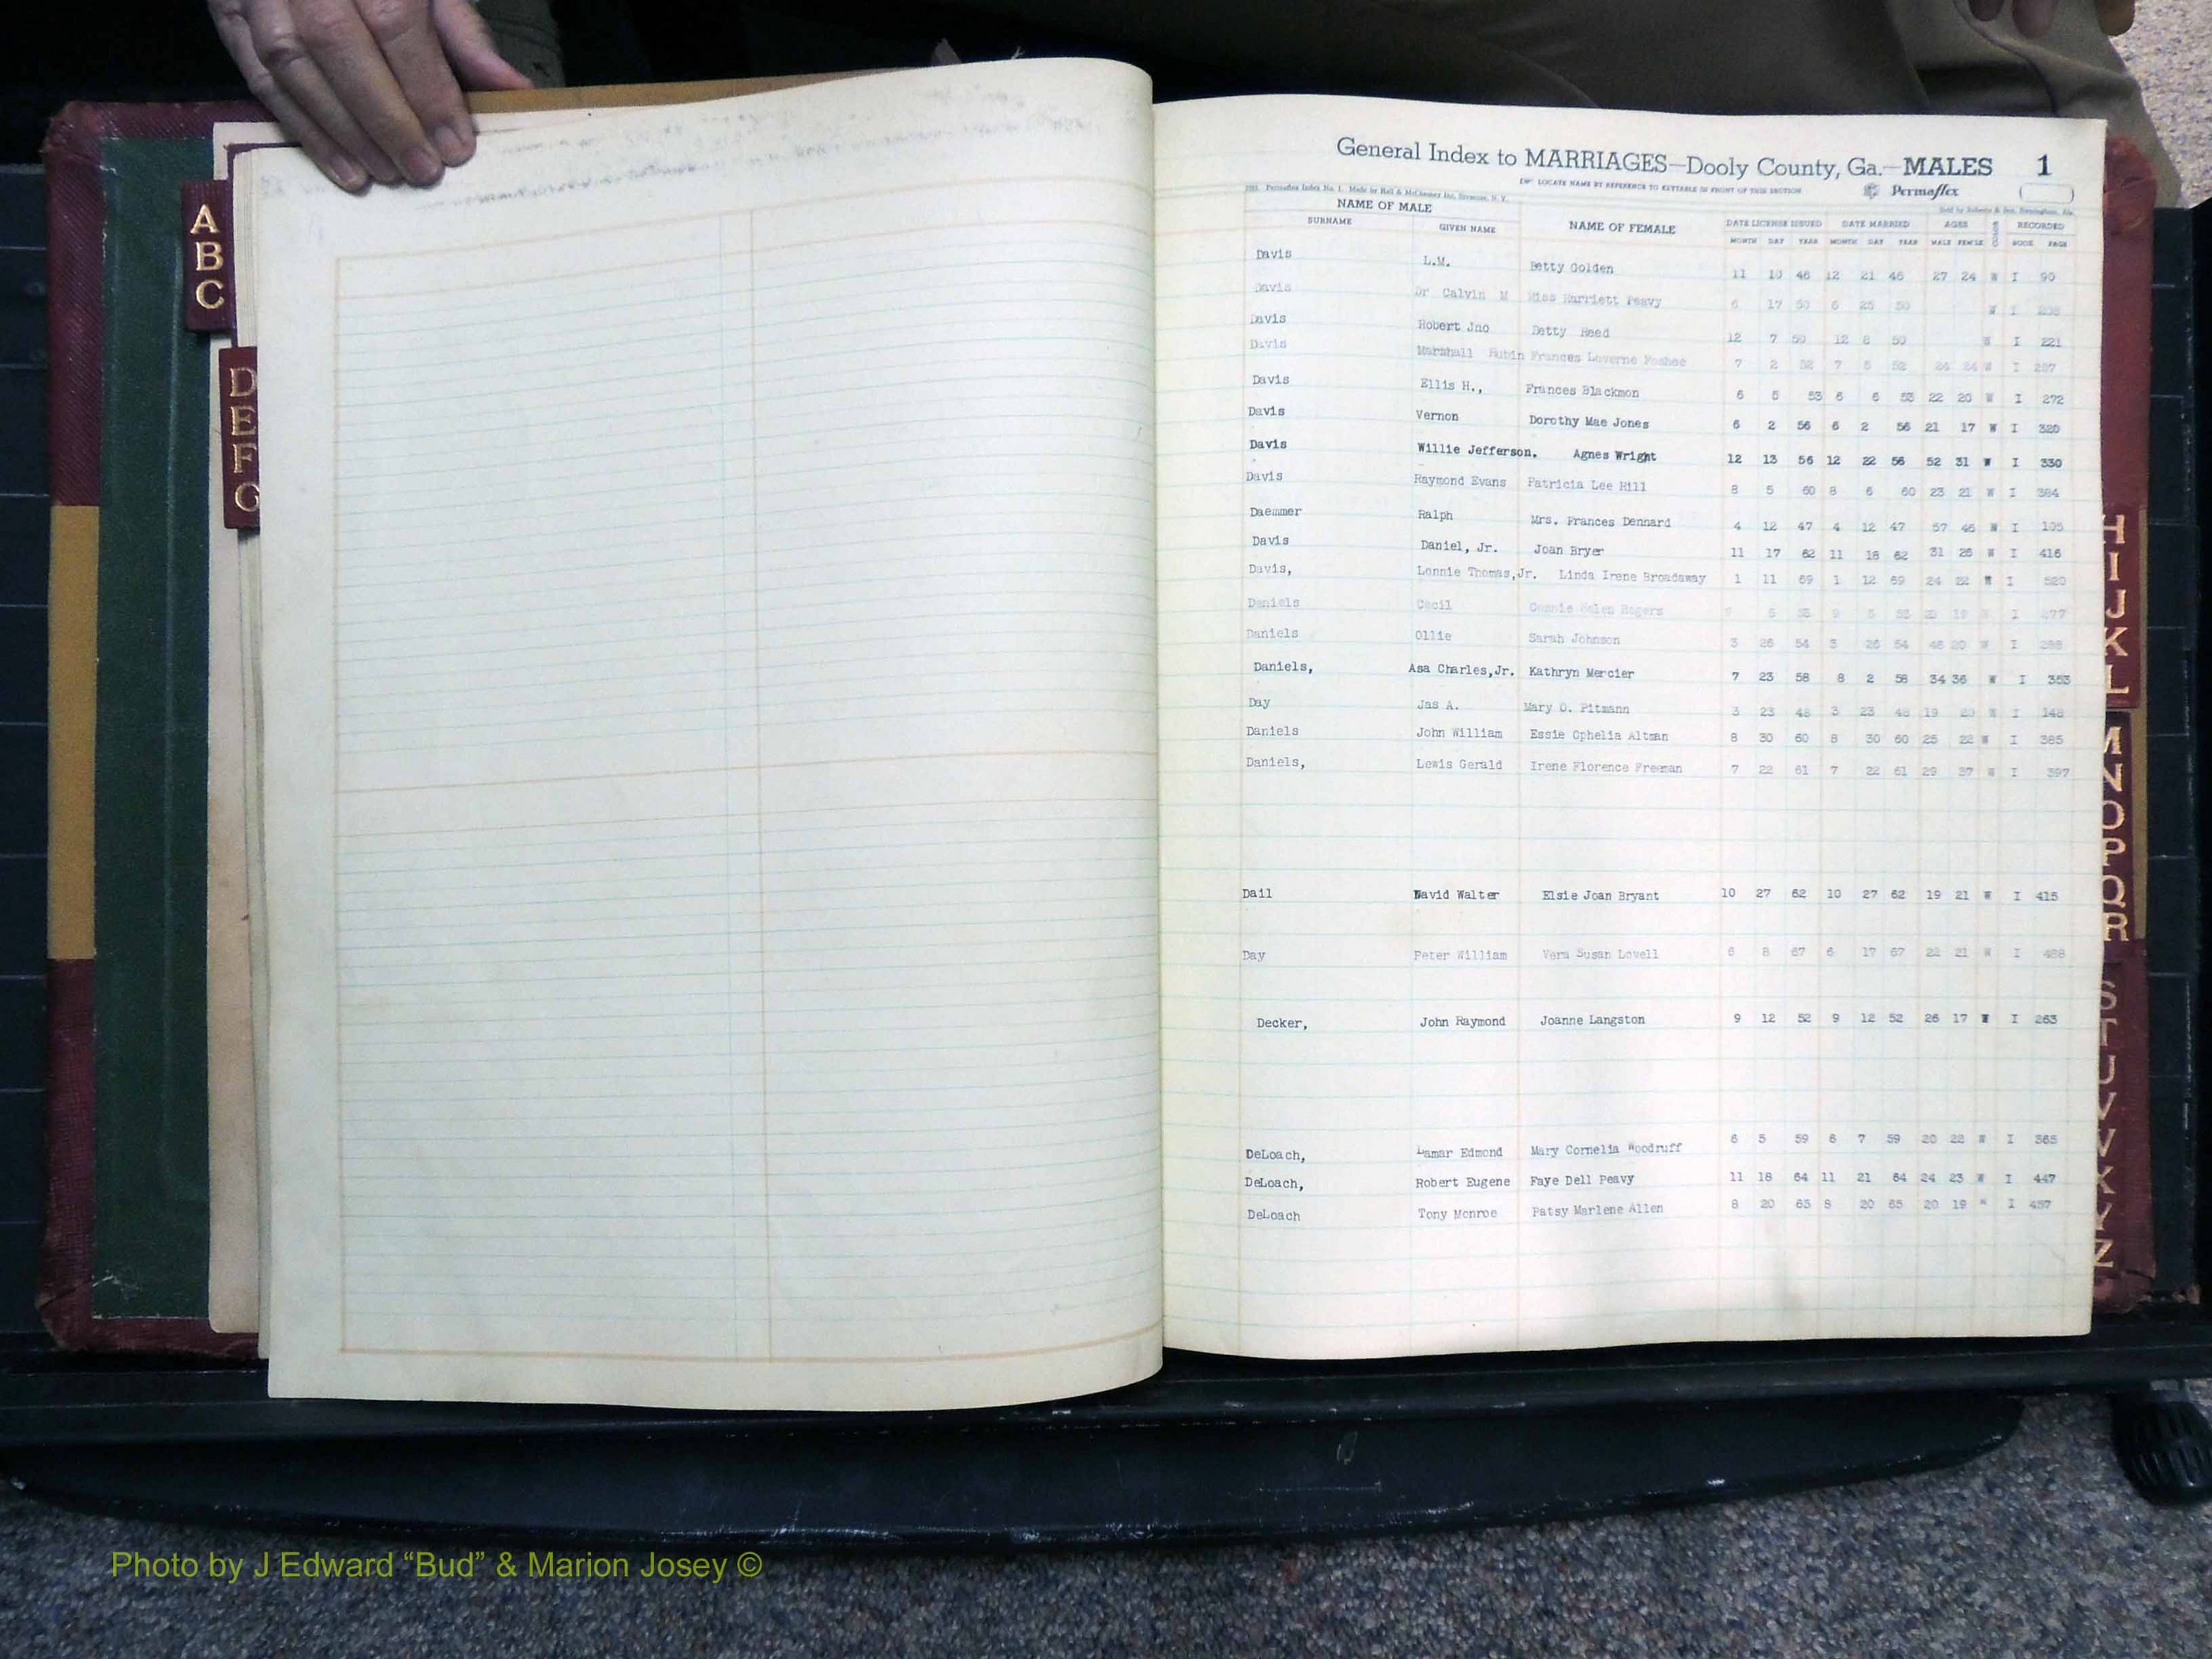 General Index to MARRIAGES—Dooly County, Ga.—MALES 1
LOCATE NAME BY REFERENCE TO KEYTABLE IN FRONT OF THIS SECTION
Permaflex
NAME OF MALE
SURNAME GIVEN NAME NAME OF FEMALE DATE LICENSE ISSUED DATE MARRIED AGES RECORDED
MONTH DAY YEAR MONTH DAY YEAR MALE FEM'LE BOOK PAGE
Davis L.M. Betty Golden 11 46 12 21 46 27 24 W I 90
Davis Dr Calvin M Miss Harriett Peavy 6 17 50 6 25 50 W I
Davis Robert Jno Betty Reed 12 7 50 12 8 50 W I 221
Davis Marshall Rubin Frances Laverne Foshee 7 2 52 7 5 52 24 24 W I 257
Davis Ellis H., Frances Blackmon 6 5 53 6 6 53 22 20 W I 272
Davis Vernon Dorothy Mae Jones 6 2 56 6 2 56 21 17 W I 320
Davis Willie Jefferson. Agnes Wright 12 13 56 12 22 56 52 31 W I 330
Davis Raymond Evans Patricia Lee Hill 8 5 60 8 6 60 23 21 W I 384
Daemmer Ralph Mrs. Frances Dennard 4 12 47 4 12 47 57 46 W I 105
Davis Daniel, Jr. Joan Bryer 11 17 62 11 18 62 31 26 W I 416
Davis, Lonnie Thomas,Jr. Linda Irene Broadaway 1 11 69 1 12 69 24 22 W I 520
Daniels Cecil Helen Rogers 5 9 I
Daniels Ollie Sarah Johnson 3 26 54 3 26 54 48 20 W I
Daniels, Asa Charles,Jr. Kathryn Mercier 7 23 58 8 2 58 34 36 W I 353
Day Jas A. Mary O. Pitmann 3 23 48 3 23 48 19 20 W I 148
Daniels John William Essie Ophelia Altman 8 30 60 8 30 60 25 22 W I 385
Daniels, Lewis Gerald Irene Florence Freeman 7 22 61 7 22 61 29 37 W I 397
Dail David Walter Elsie Joan Bryant 10 27 62 10 27 62 19 21 W I 415
Day Peter William Vera Susan Lovell 6 8 67 6 17 67 22 21 W I 488
Decker, John Raymond Joanne Langston 9 12 52 9 12 52 26 17 W I 263
DeLoach, Lamar Edmond Mary Cornelia Woodruff 6 5 59 6 7 59 20 22 W I 365
DeLoach, Robert Eugene Faye Dell Peavy 11 18 64 11 21 64 24 23 W I 447
DeLoach Tony Monroe Patsy Marlene Allen 8 20 65 8 20 65 20 19 W I 457
A
B
C
D
E
F
G
H
I
J
K
L
M
N
O
P
Q
R
S
T
U
V
W
X
Y
Z
Photo by J Edward “Bud” & Marion Josey ©